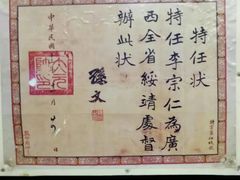 特任状
特任李宗仁為廣
西全省綏靖處督
辦此状
孫文
中華民國